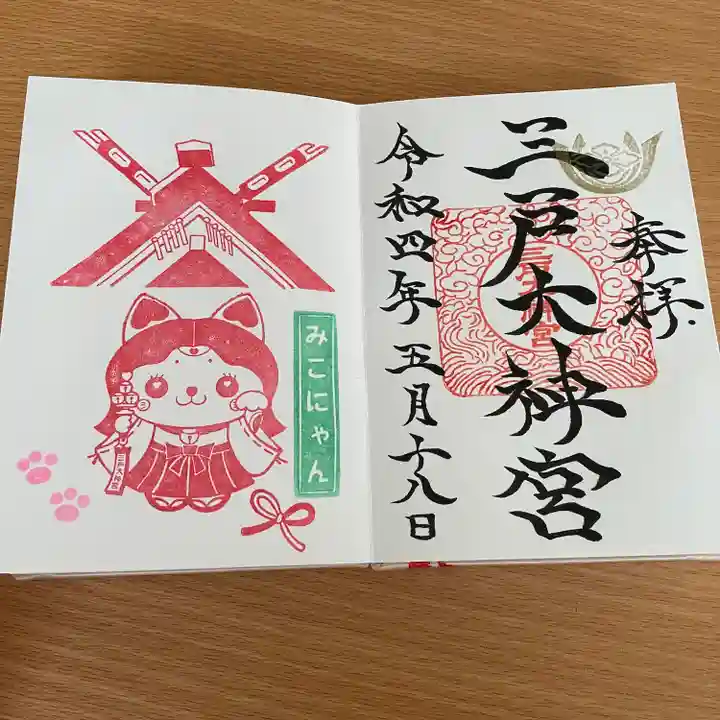 奉拝
三戸大神宮
令和四年五月十八日
三戸大神宮
みこにゃん
三戸大神宮